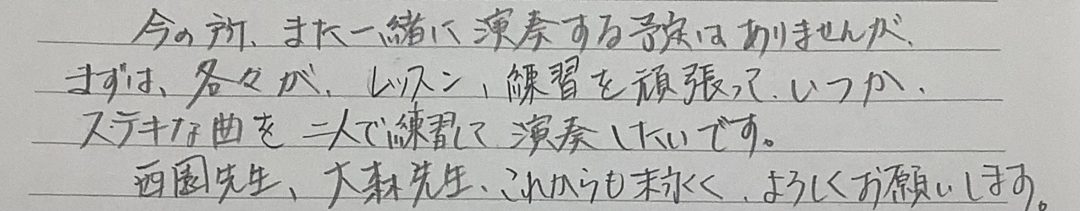 今の所、また一緒に演奏する予定はありませんが、
まずは、各々が、レッスン、練習を頑張って、いつか、
ステキな曲を二人で練習して演奏したいです。
西園先生、大森先生、これからも末永く、よろしくお願いします。